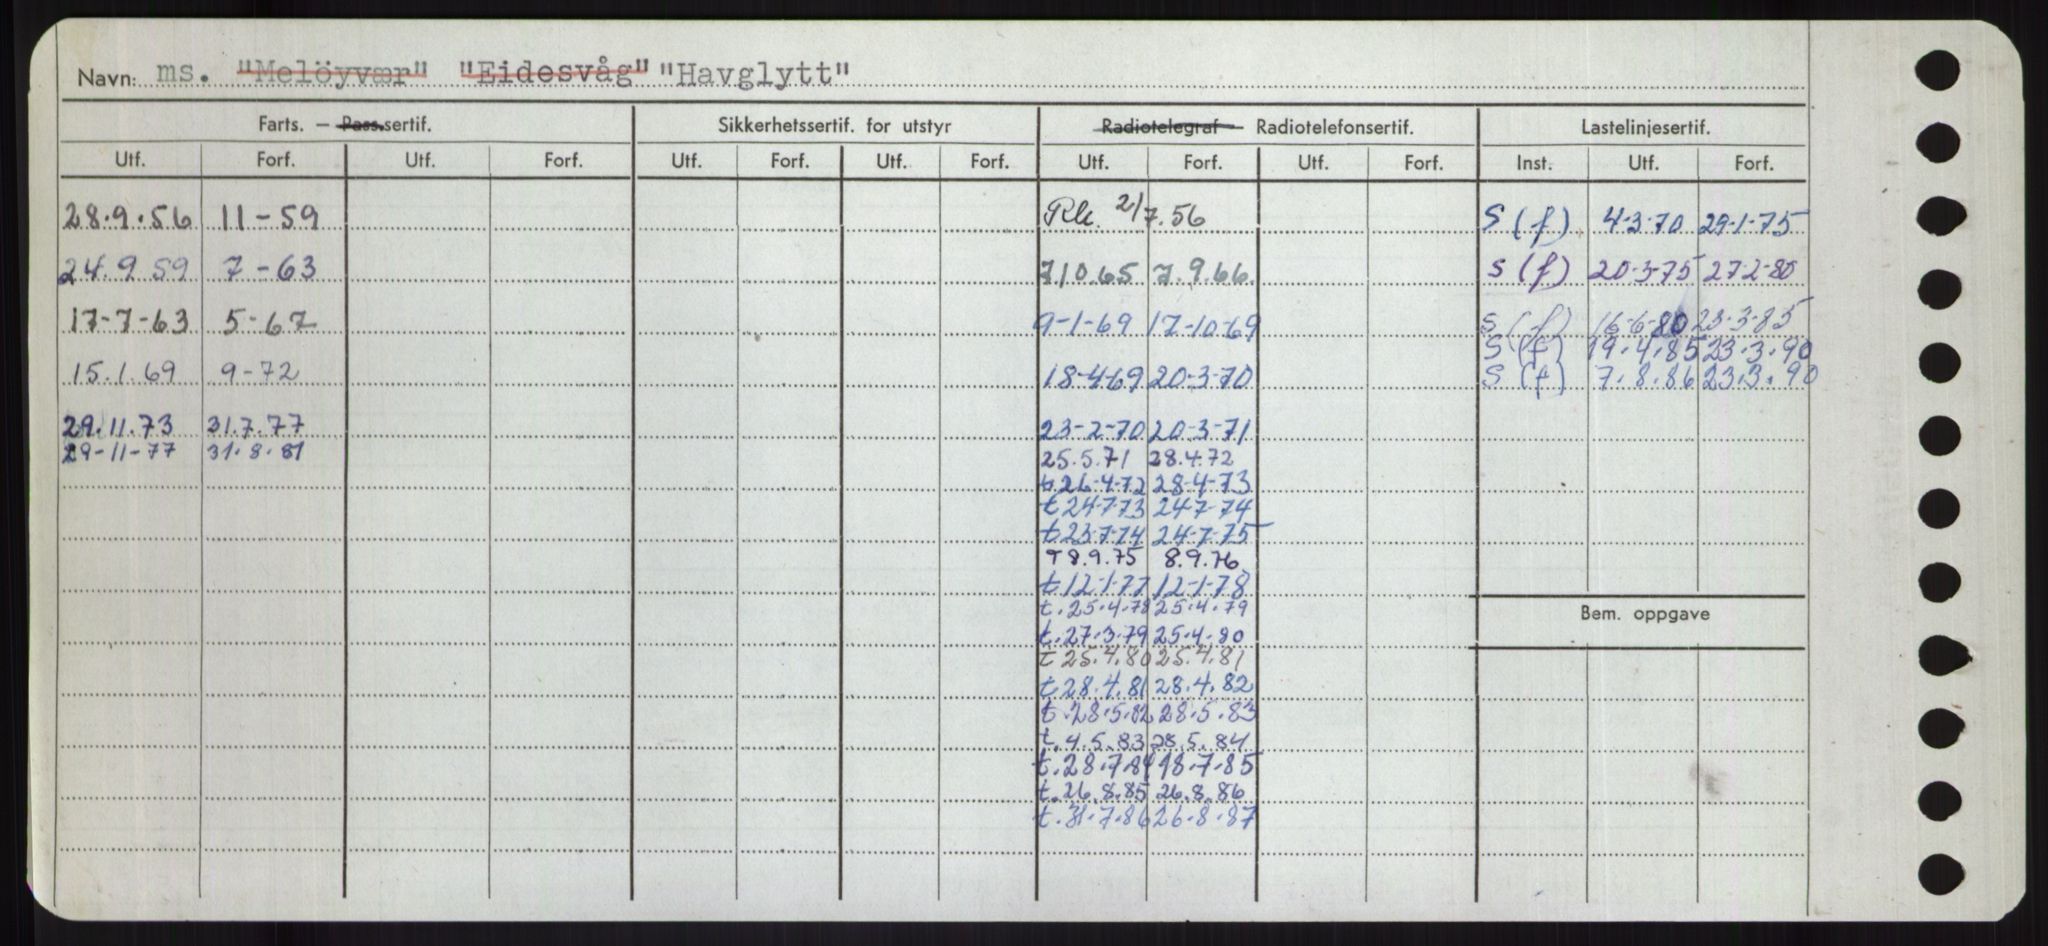 Navn: ms. "Melöyvær" "Eidesvåg" "Havglytt"
Farts. — Pass.sertif. Sikkerhetssertif. for utstyr Radiotelegraf — Radiotelefonsertif. Lastelinjesertif.
Utf. Forf. Utf. Forf. Utf. Forf. Utf. Forf. Utf. Forf. Utf. Forf. Inst. Utf. Forf.
28.9.56 11-59 Rk. 2/7.56 S (f) 4-3-70 29-1-75
24.9 59 7-63 7.10.65 7.9.66. S (f) 20-3-75 27-2-80
17-7-63 5-67 9-1-69 17-10-69 S (f) 16-6-80 23-3-85
S (f) 19.4.85 23.3.90
15.1.69 9-72 18-4-69 20-3-70 S (f) 7.8.86 23.3.90
29.11.73 31.7.77 23-2-70 20-3-71
29-11-77 31.8.81 25.5.71 28.4.72
t.26-4-72 28-4-73
t 24-7-73 24-7-74
t 23-7-74 24-7-75
T 8.9.75 8.9.76
t.12-1-77 12-1-78
t.25.4.78 25.4.79
t.27.3.79 25.4.80
t 25.4.80 25.4.81
t.28.4.81 28.4.82
t.28.5.82 28.5.83
t.4.5.83 28.5.84
t.28.7.84 18.7.85
t.26.8.85 26.8.86
t.31.7.86 26.8.87
Bem. oppgave